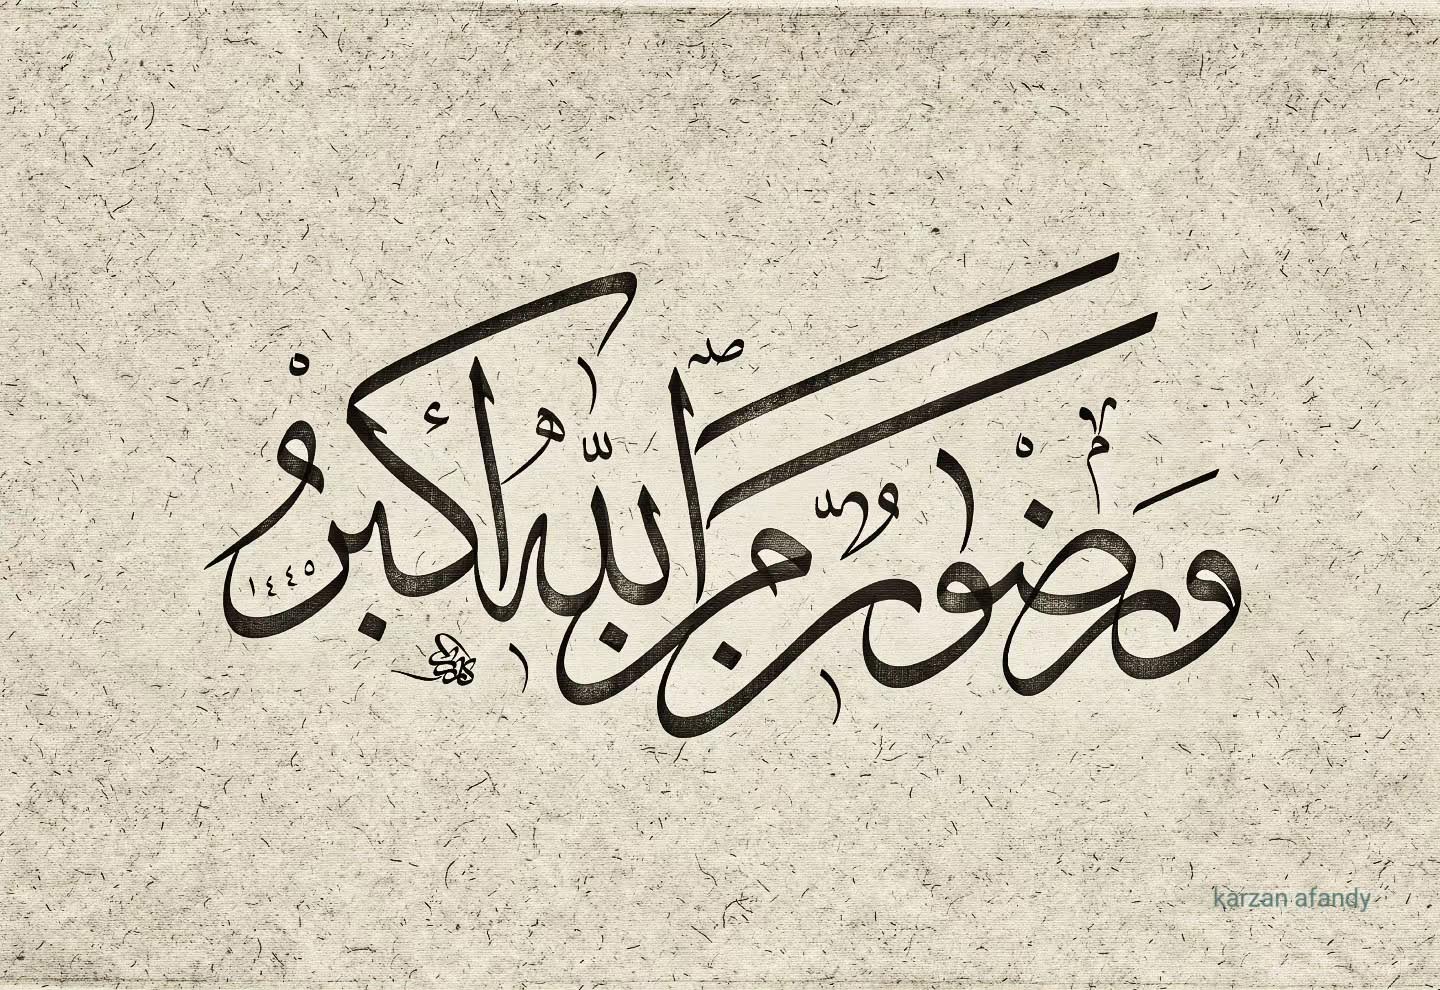 ورضوان من الله أكبر
١٤٤٥
karzan afandy